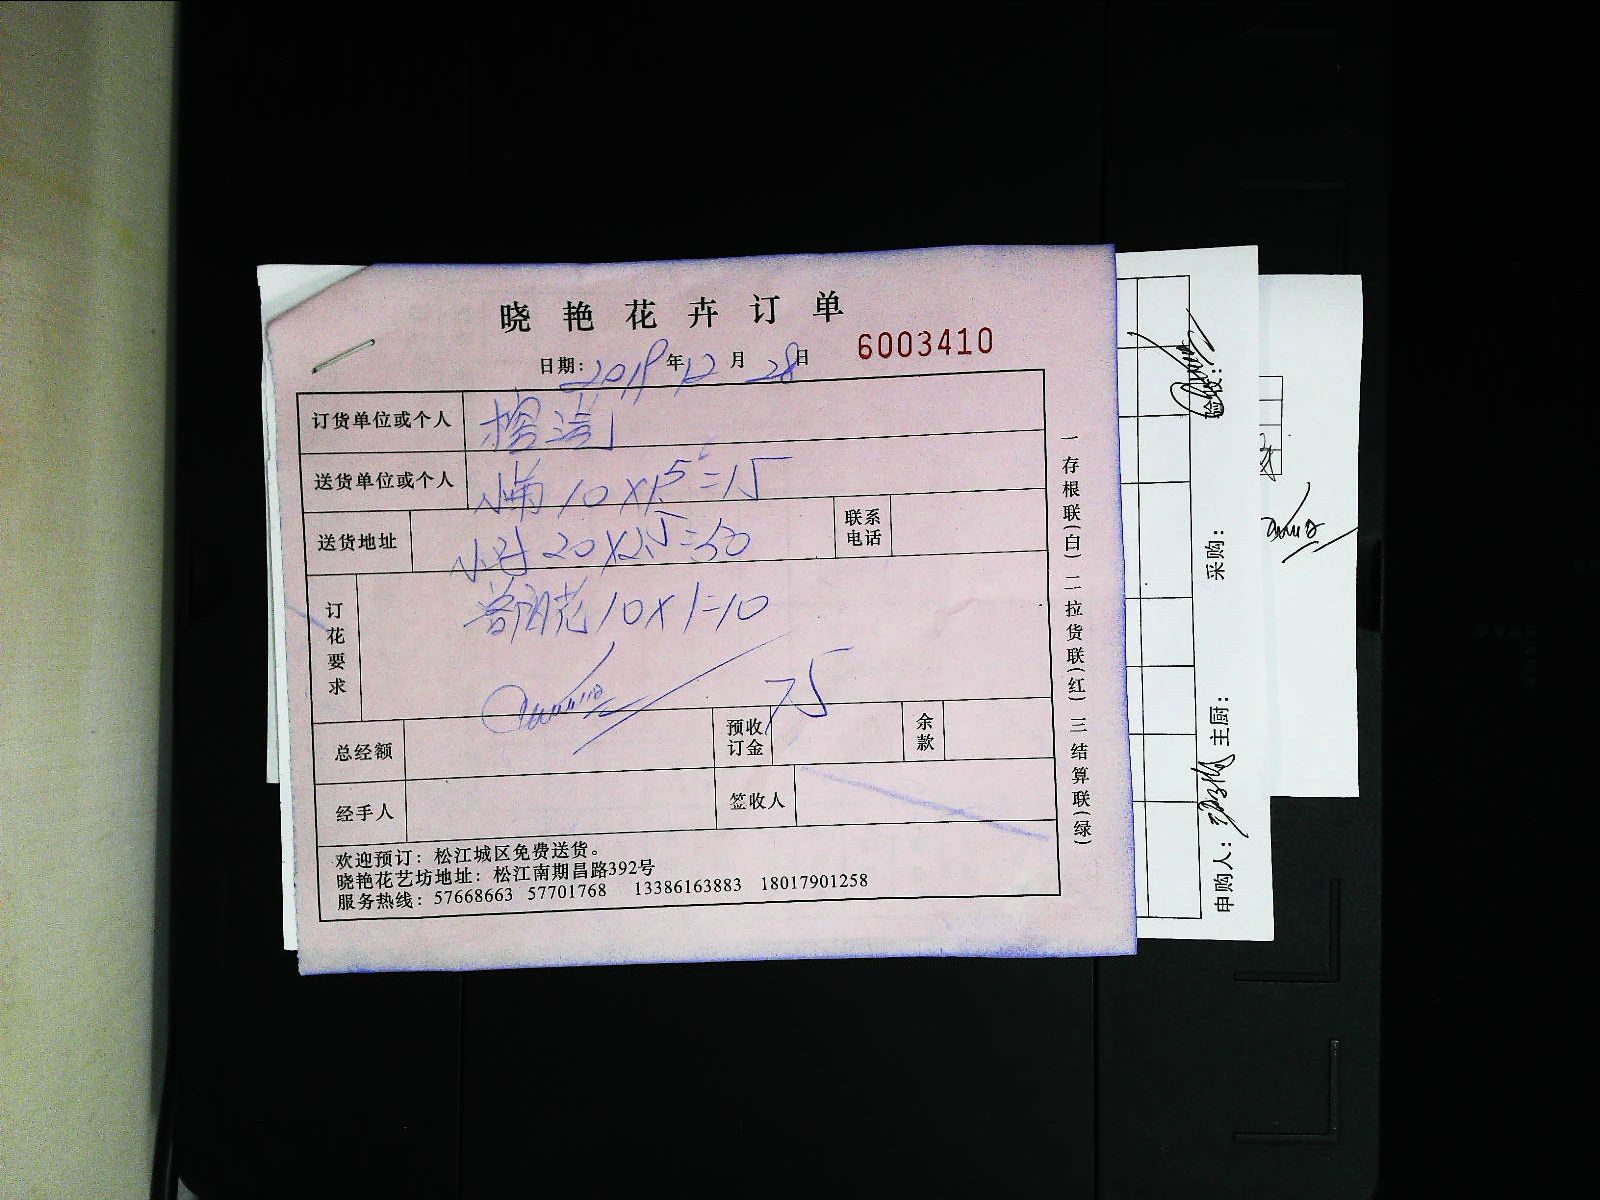 晓艳花卉订单
日期: 2019年12月28日 6003410
订货单位或个人
送货单位或个人 小菊 10×1.5=15
送货地址 20×2.5=50 联系电话
订花要求 10×1=10
75
总经额 预收订金 余款
经手人 签收人
欢迎预订：松江城区免费送货。
晓艳花艺坊地址：松江南期昌路392号
服务热线：57668663 57701768 13386163883 18017901258
一存根联(白) 二拉货联(红) 三结算联(绿)
验收：
采购：
主厨：
申购人：